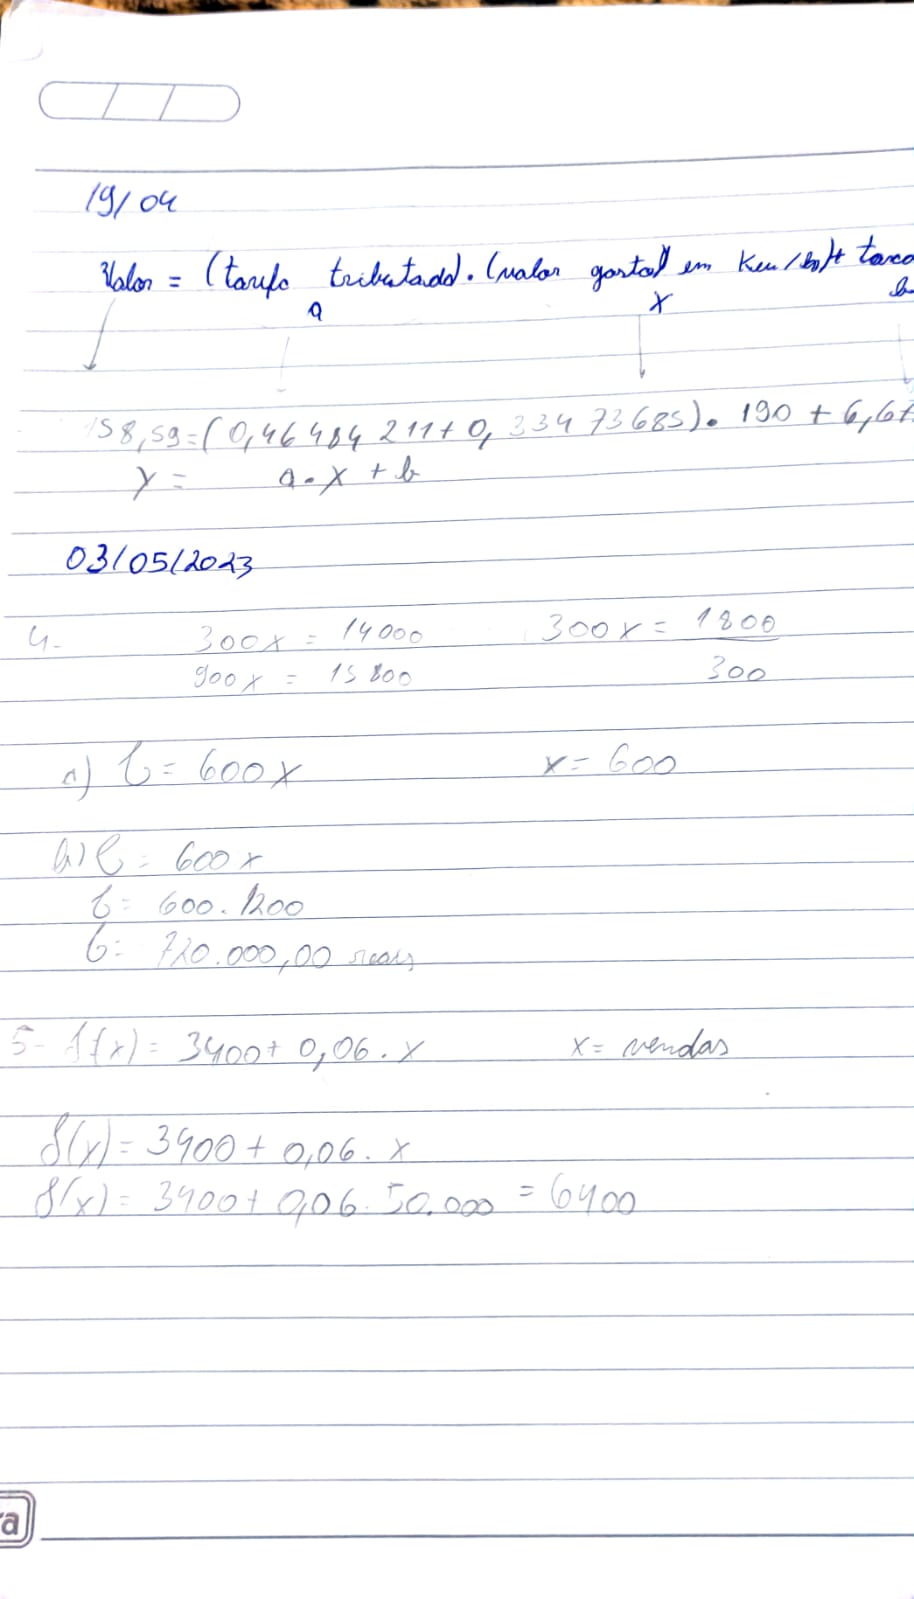 19/04
Valor = (tarifa tributada).(valor gasto) em Kw/h)+ taxa
a x b
158,59=(0,46484211+0,33473685).190+6,67
y= a.x+b
03/05/2023
4- 300x = 14000 300x = 1800
900x = 15800 300
a) C= 600x x= 600
b) C= 600x
C= 600.1200
C= 720.000,00 reais
5- f(x)= 3400+0,06.x x= vendas
f(x)=3400+0,06.x
f(x)= 3400+0,06.50.000=6400
ra